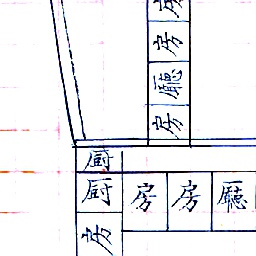 房
房
廳
房
厨
厨
房
房
廳
房